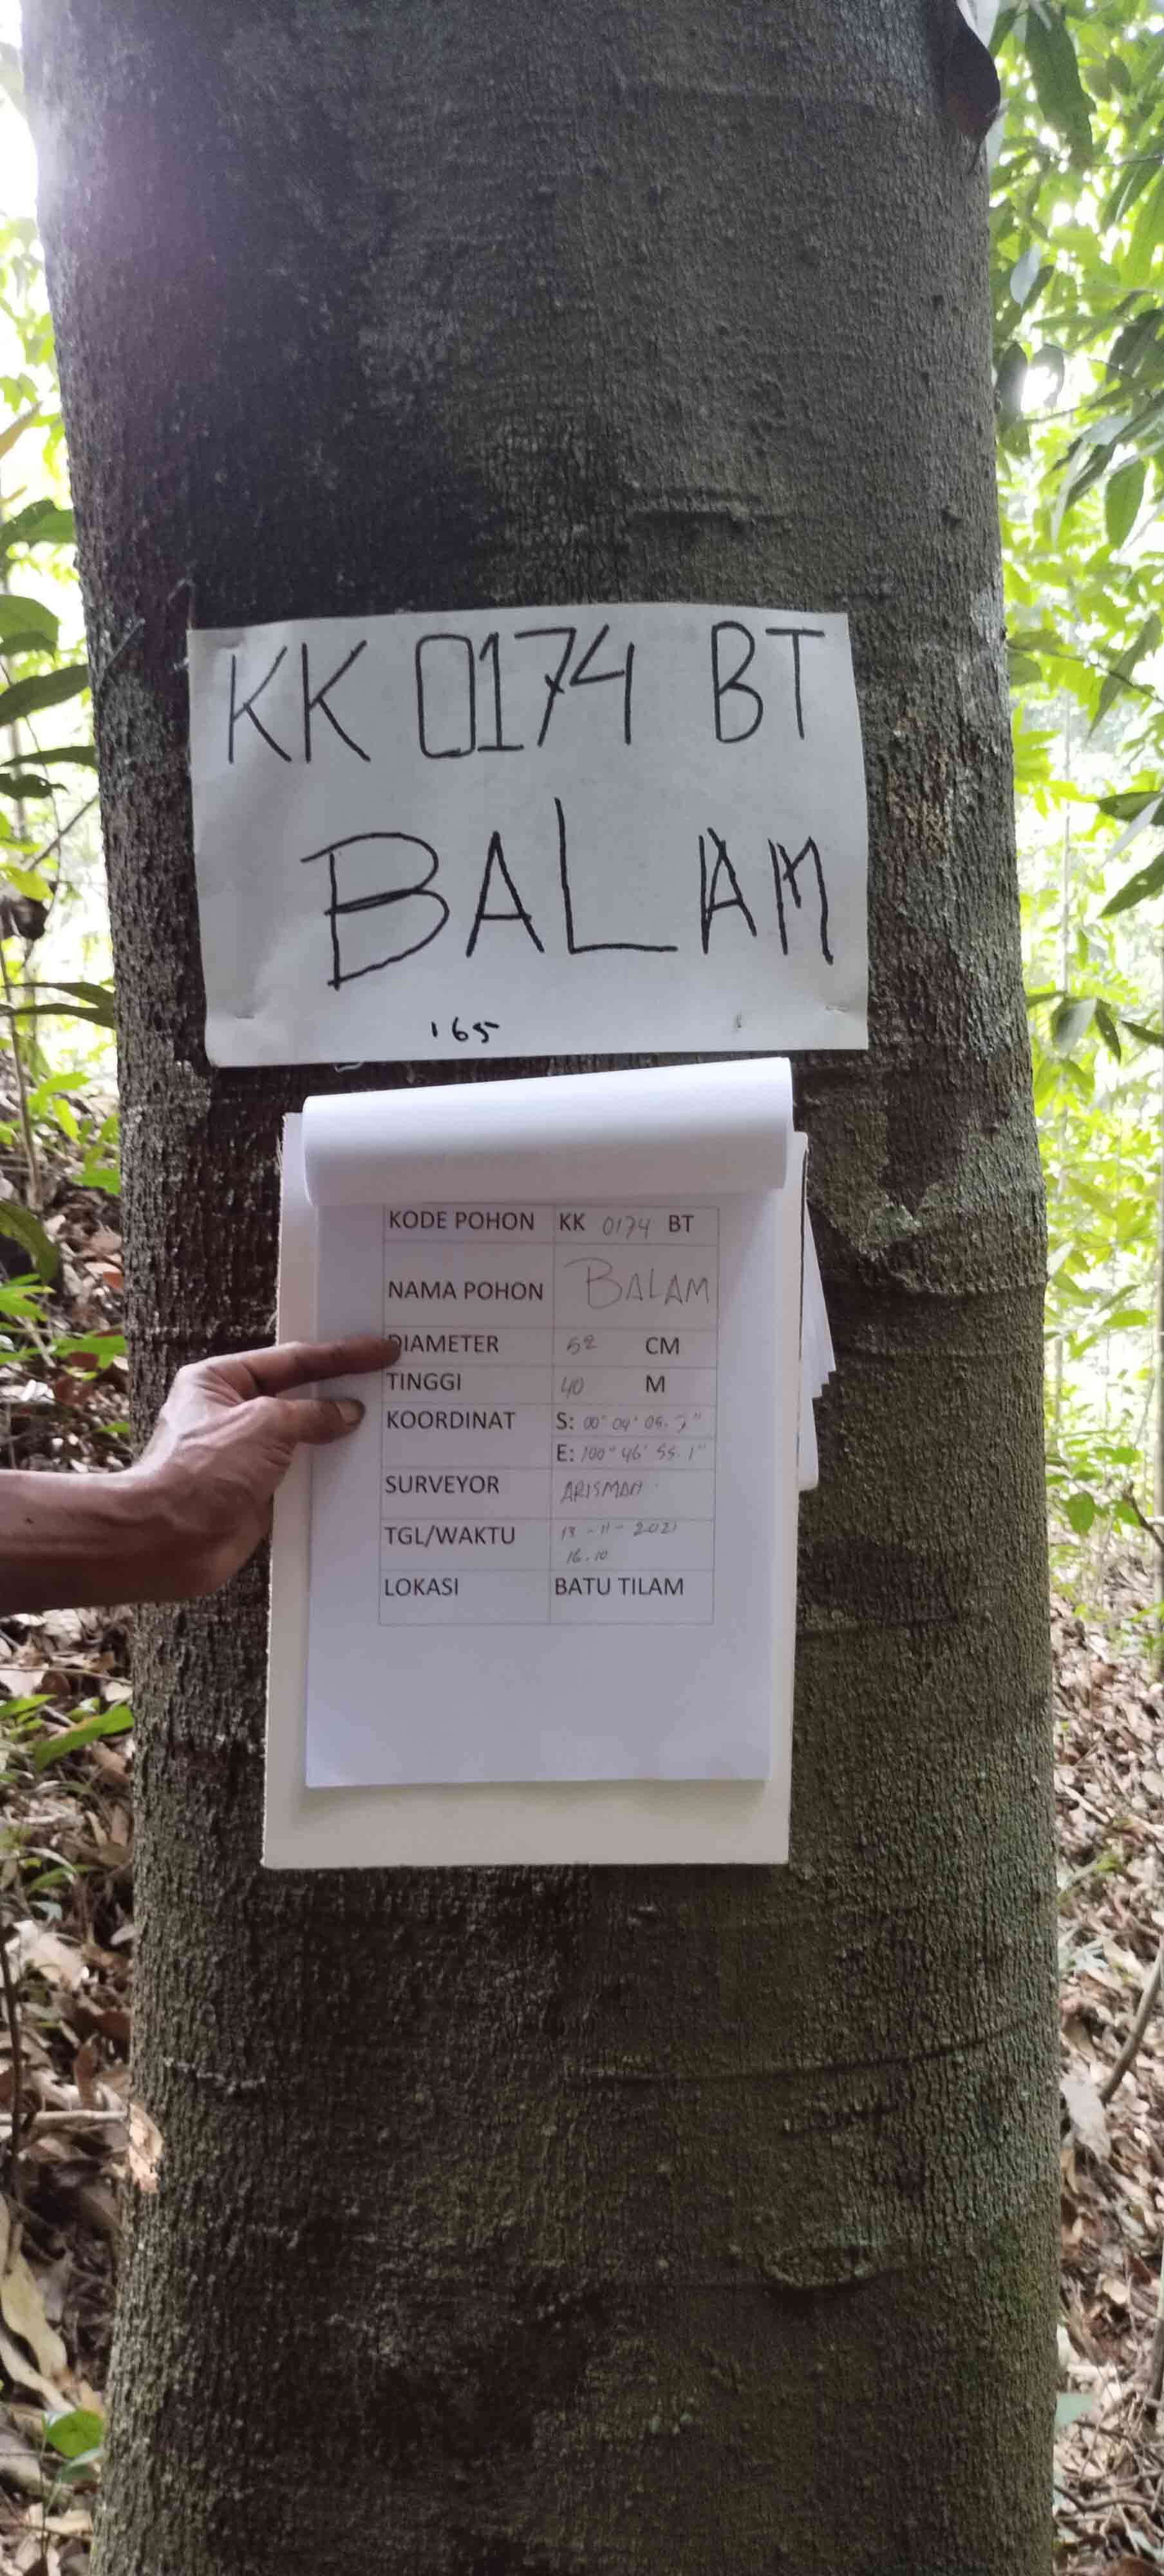 KK 0174 BT
BALAM
165
KODE POHON KK 0174 BT
NAMA POHON BALAM
DIAMETER 52 CM
TINGGI 40 M
KOORDINAT S: 00° 04' 05.7"
E: 100° 46' 55.1"
SURVEYOR ARISMAN
TGL/WAKTU 13-11-2021
16.10
LOKASI BATU TILAM